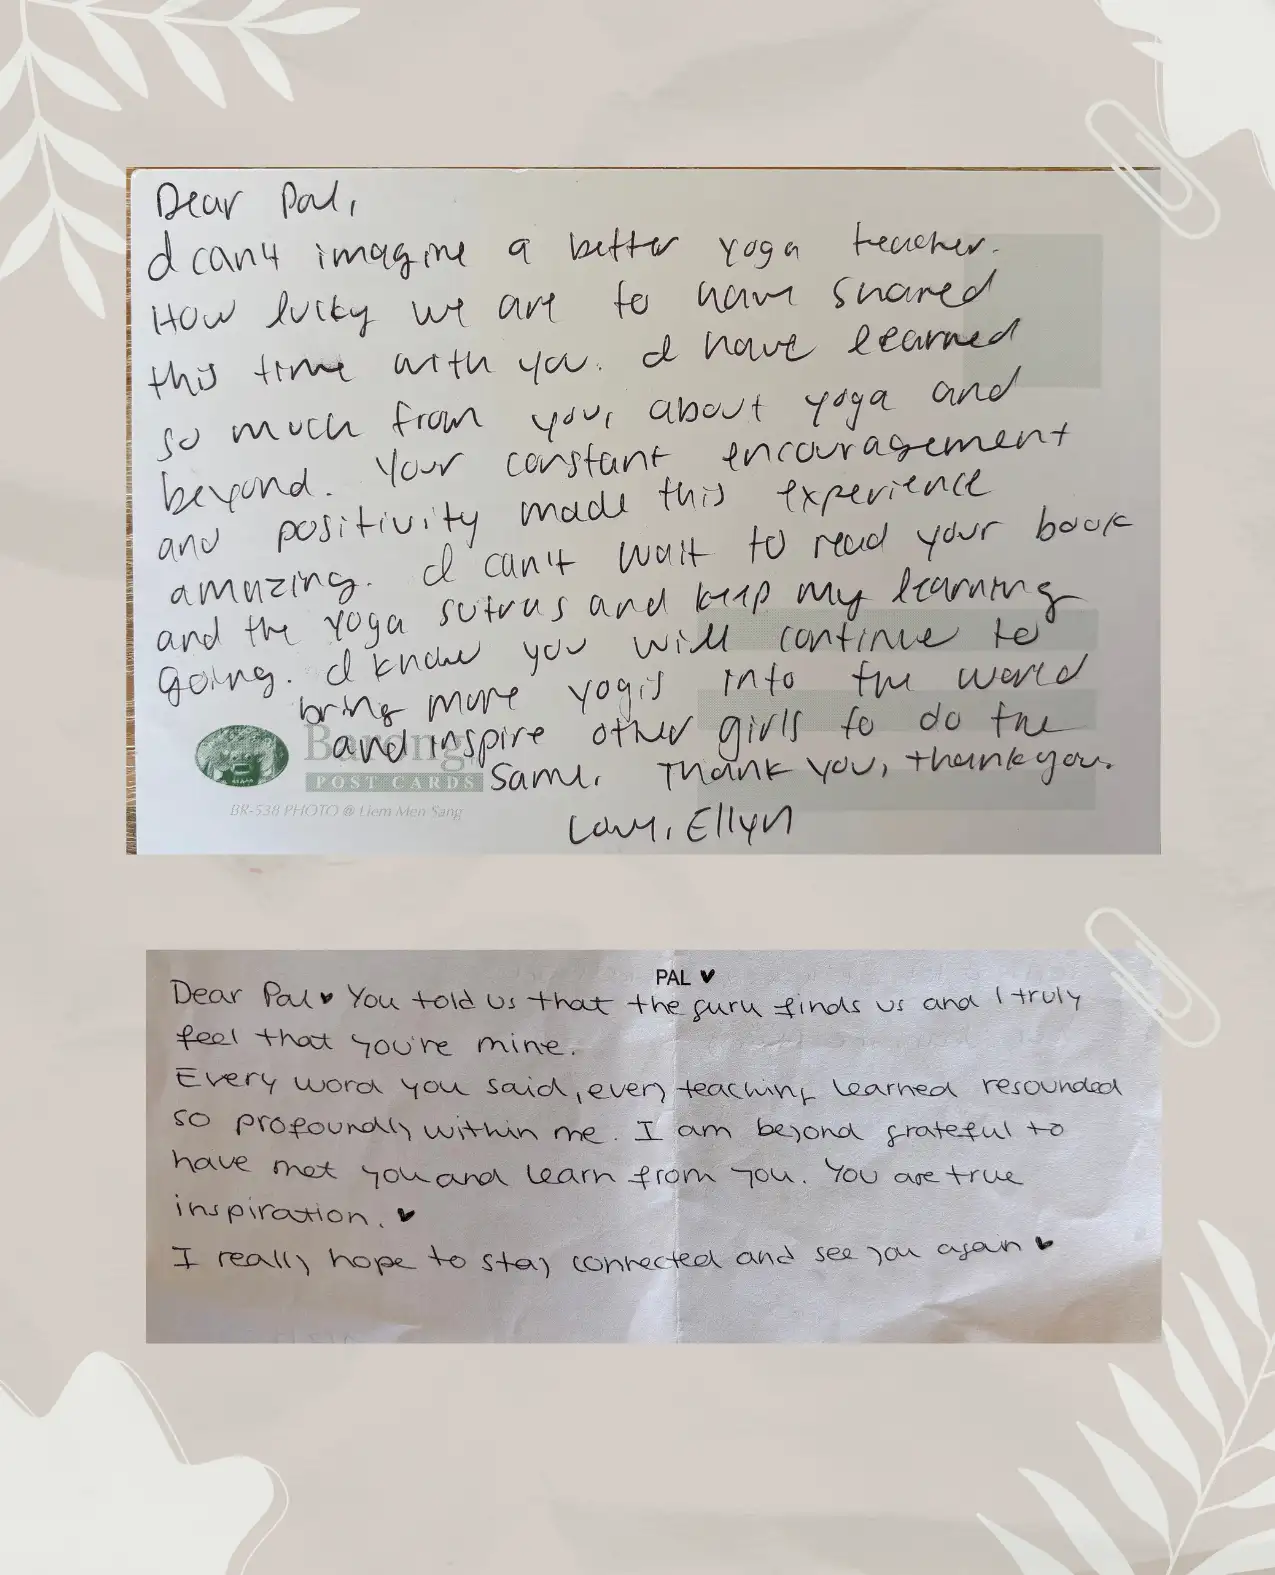 Dear Pal,
I can't imagine a better yoga teacher.
How lucky we are to have shared
this time with you. I have learned
so much from you, about yoga and
beyond. Your constant encouragement
and positivity made this experience
amazing. I can't wait to read your book
and the yoga sutras and keep my learning
going. I know you will continue to
bring more yogis into the world
and inspire other girls to do the
same. Thank you, thank you.
Love, Ellyn
Barong
POST CARDS
BR-538 PHOTO @ Liem Men Sang
PAL ♥
Dear Pal ♥ You told us that the guru finds us and I truly
feel that you're mine.
Every word you said, every teaching learned resounded
so profoundly within me. I am beyond grateful to
have met you and learn from you. You are true
inspiration. ♥
I really hope to stay connected and see you again ♥